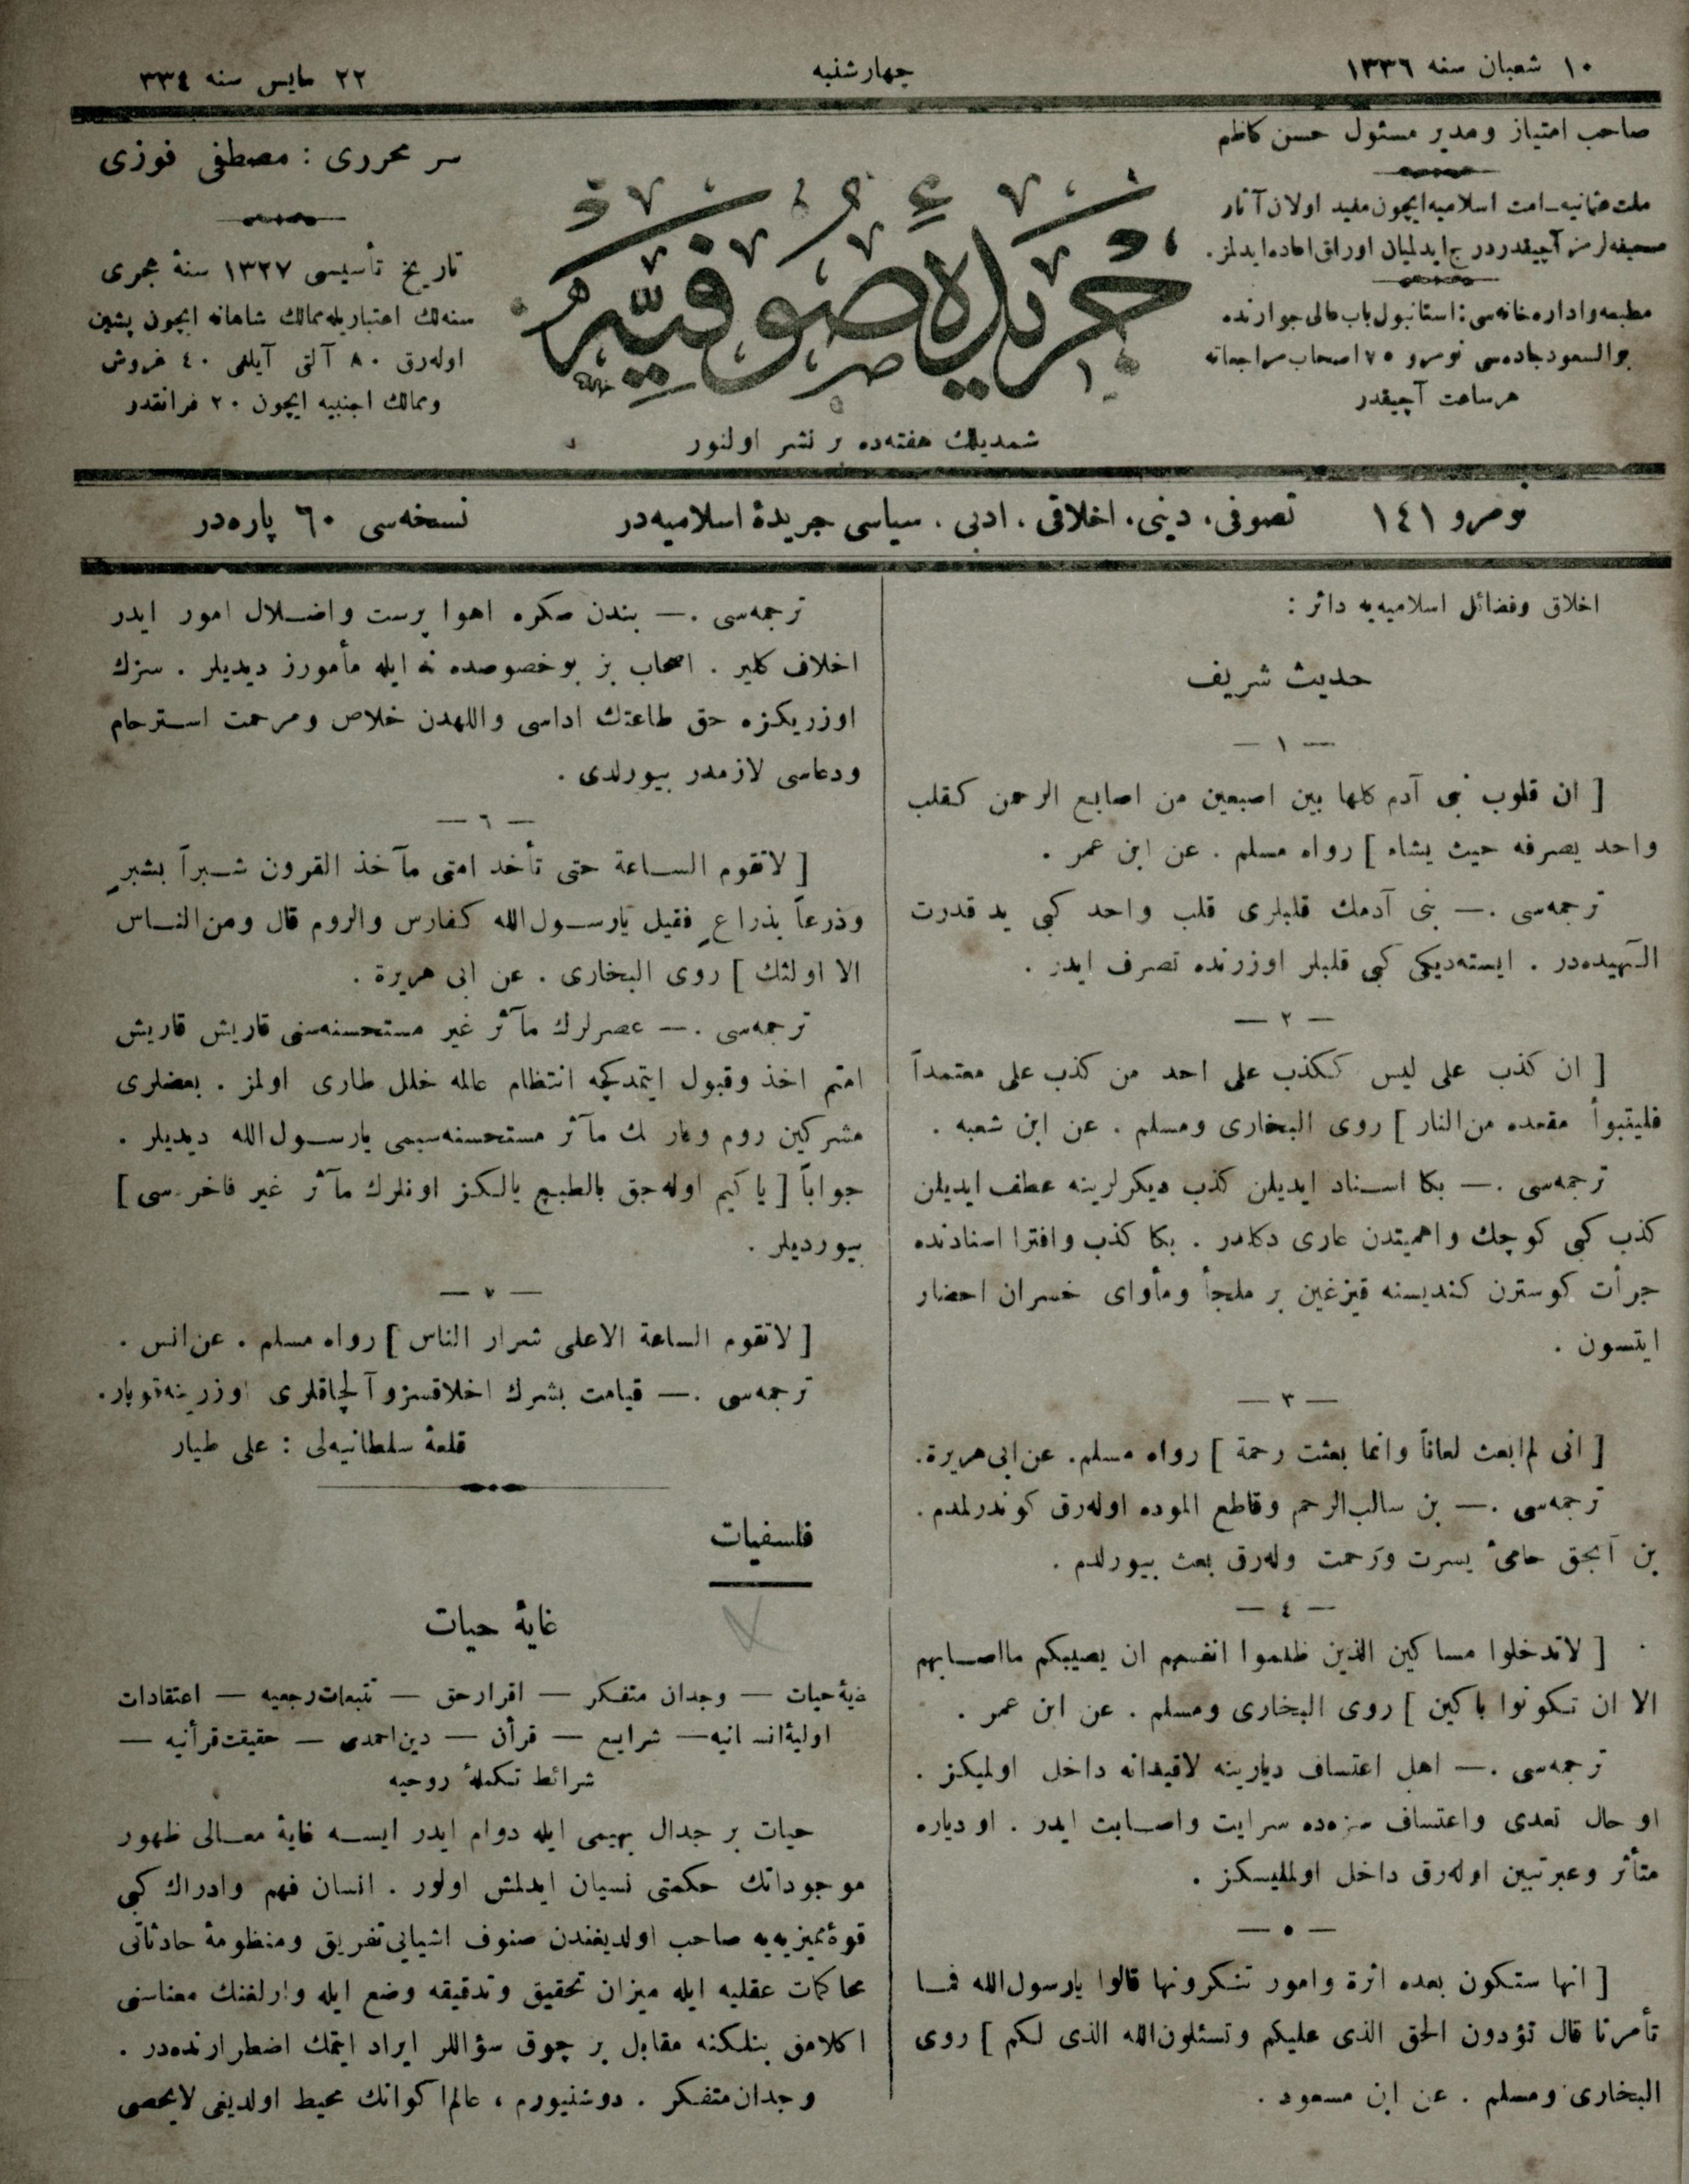 ١٠ شعبان سنه ١٣٣٦
چهارشنبه
٢٢ مايس سنه ٣٣٤
صاحب امتياز ومدير مسئول حسن كاظم
ملت عثمانيه ـ امت اسلاميه ايچون مفيد اولان آثار
صحيفه‌لرمز آچيقدر درج ايدلميان اوراق اعاده ايدلمز.
مطبعه واداره‌خانه‌سى : استانبول باب عالى جوارنده
ابوالسعود جاده‌سى نومرو ٧٥ اصحاب مراجعاته
هر ساعت آچيقدر
جريدهٔ صوفيه
شمديلك هفته‌ده بر نشر اولنور
سر محررى : مصطفى فوزى
تاريخ تأسيسى ١٣٢٧ سنهٔ هجرى
سنه‌لك اعتباريله ممالك شاهانه ايچون پشين
اوله‌رق ٨٠ آلتى آيلغى ٤٠ غروش
وممالك اجنبيه ايچون ٢٠ فرانقدر
نومرو ١٤١
تصوفى، دينى، اخلاقى، ادبى، سياسى جريدهٔ اسلاميه‌در
نسخه‌سى ٦٠ پاره‌در
اخلاق وفضائل اسلاميه‌يه دائر :
حديث شريف
— ١ —
[ ان قلوب بنى آدم كلها بين اصبعين من اصابع الرحمن كقلب
واحد يصرفه حيث يشاء ] رواه مسلم . عن ابن عمر .
ترجمه‌سى .— بنى آدمك قلبلرى قلب واحد كبى يد قدرت
الٓهيده‌در . ايسته‌ديكى كبى قلبلر اوزرنده تصرف ايدر .
— ٢ —
[ ان كذب على ليس ككذب على احد من كذب على معتمداً
فليتبوأ مقعده من النار ] روى البخارى ومسلم . عن ابن شعبه .
ترجمه‌سى .— بكا اسناد ايديلن كذب ديكرلرينه عطف ايديلن
كذب كبى كوچك واهميتدن عارى دكلدر . بكا كذب وافترا اسنادنده
جرأت كوسترن كنديسنه قيزغين بر ملجأ ومأواى خسران احضار
ايتسون .
— ٣ —
[ انى لم ابعث لعاناً وانما بعثت رحمة ] رواه مسلم. عن ابى هريرة.
ترجمه‌سى .— بن سالب الرحم وقاطع الموده اوله‌رق كوندرلمدم.
بن آنجق حامئ يسرت ورحمت وله‌رق بعث بيورلدم .
— ٤ —
[ لاتدخلوا مساكين الذين ظلموا انفسهم ان يصيبكم مااصابهم
الا ان تكونوا باكين ] روى البخارى ومسلم . عن ابن عمر .
ترجمه‌سى .— اهل اعتساف ديارينه لاقيدانه داخل اولميكز .
او حال تعدى واعتساف سزه‌ده سرايت واصابت ايدر . او دياره
متأثر وعبرتبين اوله‌رق داخل اولمليسكز .
— ٥ —
[ انها ستكون بعده اثرة وامور تنكرونها قالوا يارسول‌الله فما
تأمرنا قال تؤدون الحق الذى عليكم وتسئلون‌الله الذى لكم ] روى
البخارى ومسلم . عن ابن مسعود .
ترجمه‌سى .— بندن صكره اهوا پرست واضلال امور ايدر
اخلاف كلير . اصحاب بز بوخصوصده نه ايله مأمورز ديديلر . سزك
اوزريكزه حق طاعتك اداسى واللهدن خلاص ومرحمت استرحام
ودعاسى لازمدر بيورلدى .
— ٦ —
[ لاتقوم الساعة حتى تأخذ امتى مآخذ القرون شبراً بشبرٍ
وذرعاً بذراعٍ فقيل يارسول‌الله كفارس والروم قال ومن الناس
الا اولئك ] روى البخارى . عن ابى هريرة .
ترجمه‌سى .— عصرلرك مآثر غير مستحسنه‌سنى قاريش قاريش
امتم اخذ وقبول ايتمدكجه انتظام عالمه خلل طارى اولمز . بعضلرى
مشركين روم و لك مآثر مستحسنه‌سيمى يارسول‌الله ديديلر .
جواباً [ يا كيم اوله‌جق بالطبع يالكز اونلرك مآثر غير فاخره‌سى ]
بيورديلر .
— ٧ —
[ لاتقوم الساعة الاعلى شرار الناس ] رواه مسلم . عن انس .
ترجمه‌سى .— قيامت بشرك اخلاقسز و آلچاقلرى اوزرينه قوپار.
قلعهٔ سلطانيه‌لى : على طيار
فلسفيات
غايهٔ حيات
غايهٔ حيات — وجدان متفكر — اقرار حق — تتبعات رجعيه — اعتقادات
اوليهٔ انسانيه — شرايع — قرآن — دين احمدى — حقيقت قرآنيه —
شرائط تكملهٔ روحيه
حيات بر جدال بهيمى ايله دوام ايدر ايسه غايهٔ معالى ظهور
موجوداتك حكمتى نسيان ايدلمش اولور . انسان فهم وادراك كبى
قوهٔ مميزه‌يه صاحب اولديغندن صنوف اشيايى تفريق ومنظومهٔ حادثاتى
محاكمات عقليه ايله ميزان تحقيق وتدقيقه وضع ايله وارلغنك معناسنى
اكلامق بنلكنه مقابل بر چوق سؤاللر ايراد ايتمك اضطرارنده‌در .
وجدان متفكر . دوشنيورم ، عالم اكوانك محيط اولديغى لايحصى